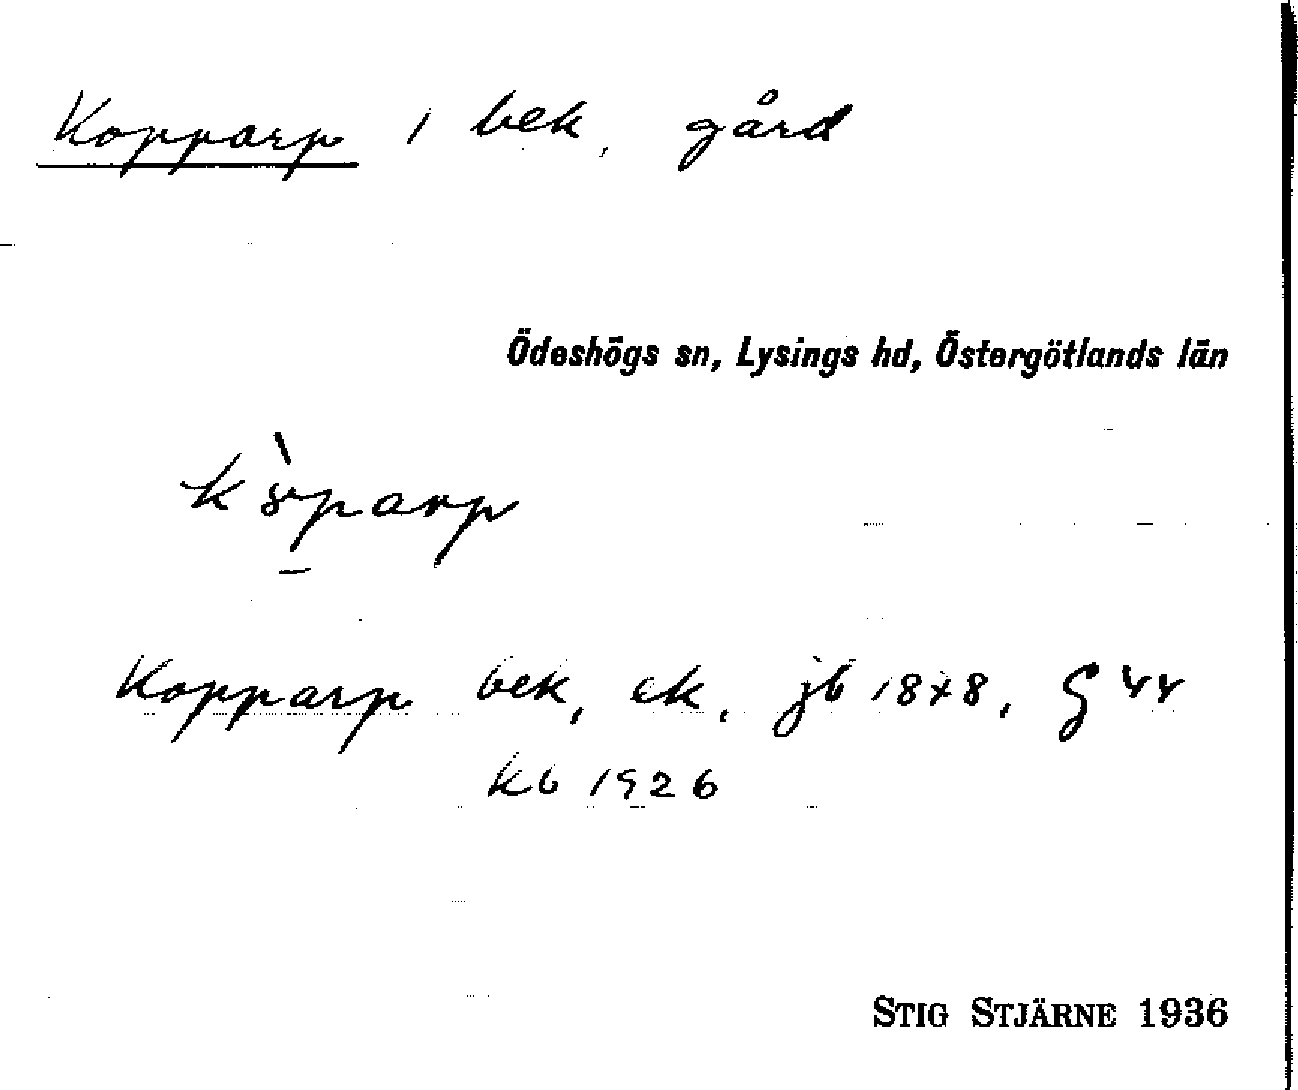 Kopparp 1 bek, gård
Ödeshögs sn, Lysings hd, Östergötlands län
Kopparp bek, ek, jb 1878, § 44
kb 1926
STIG STJÄRNE 1936